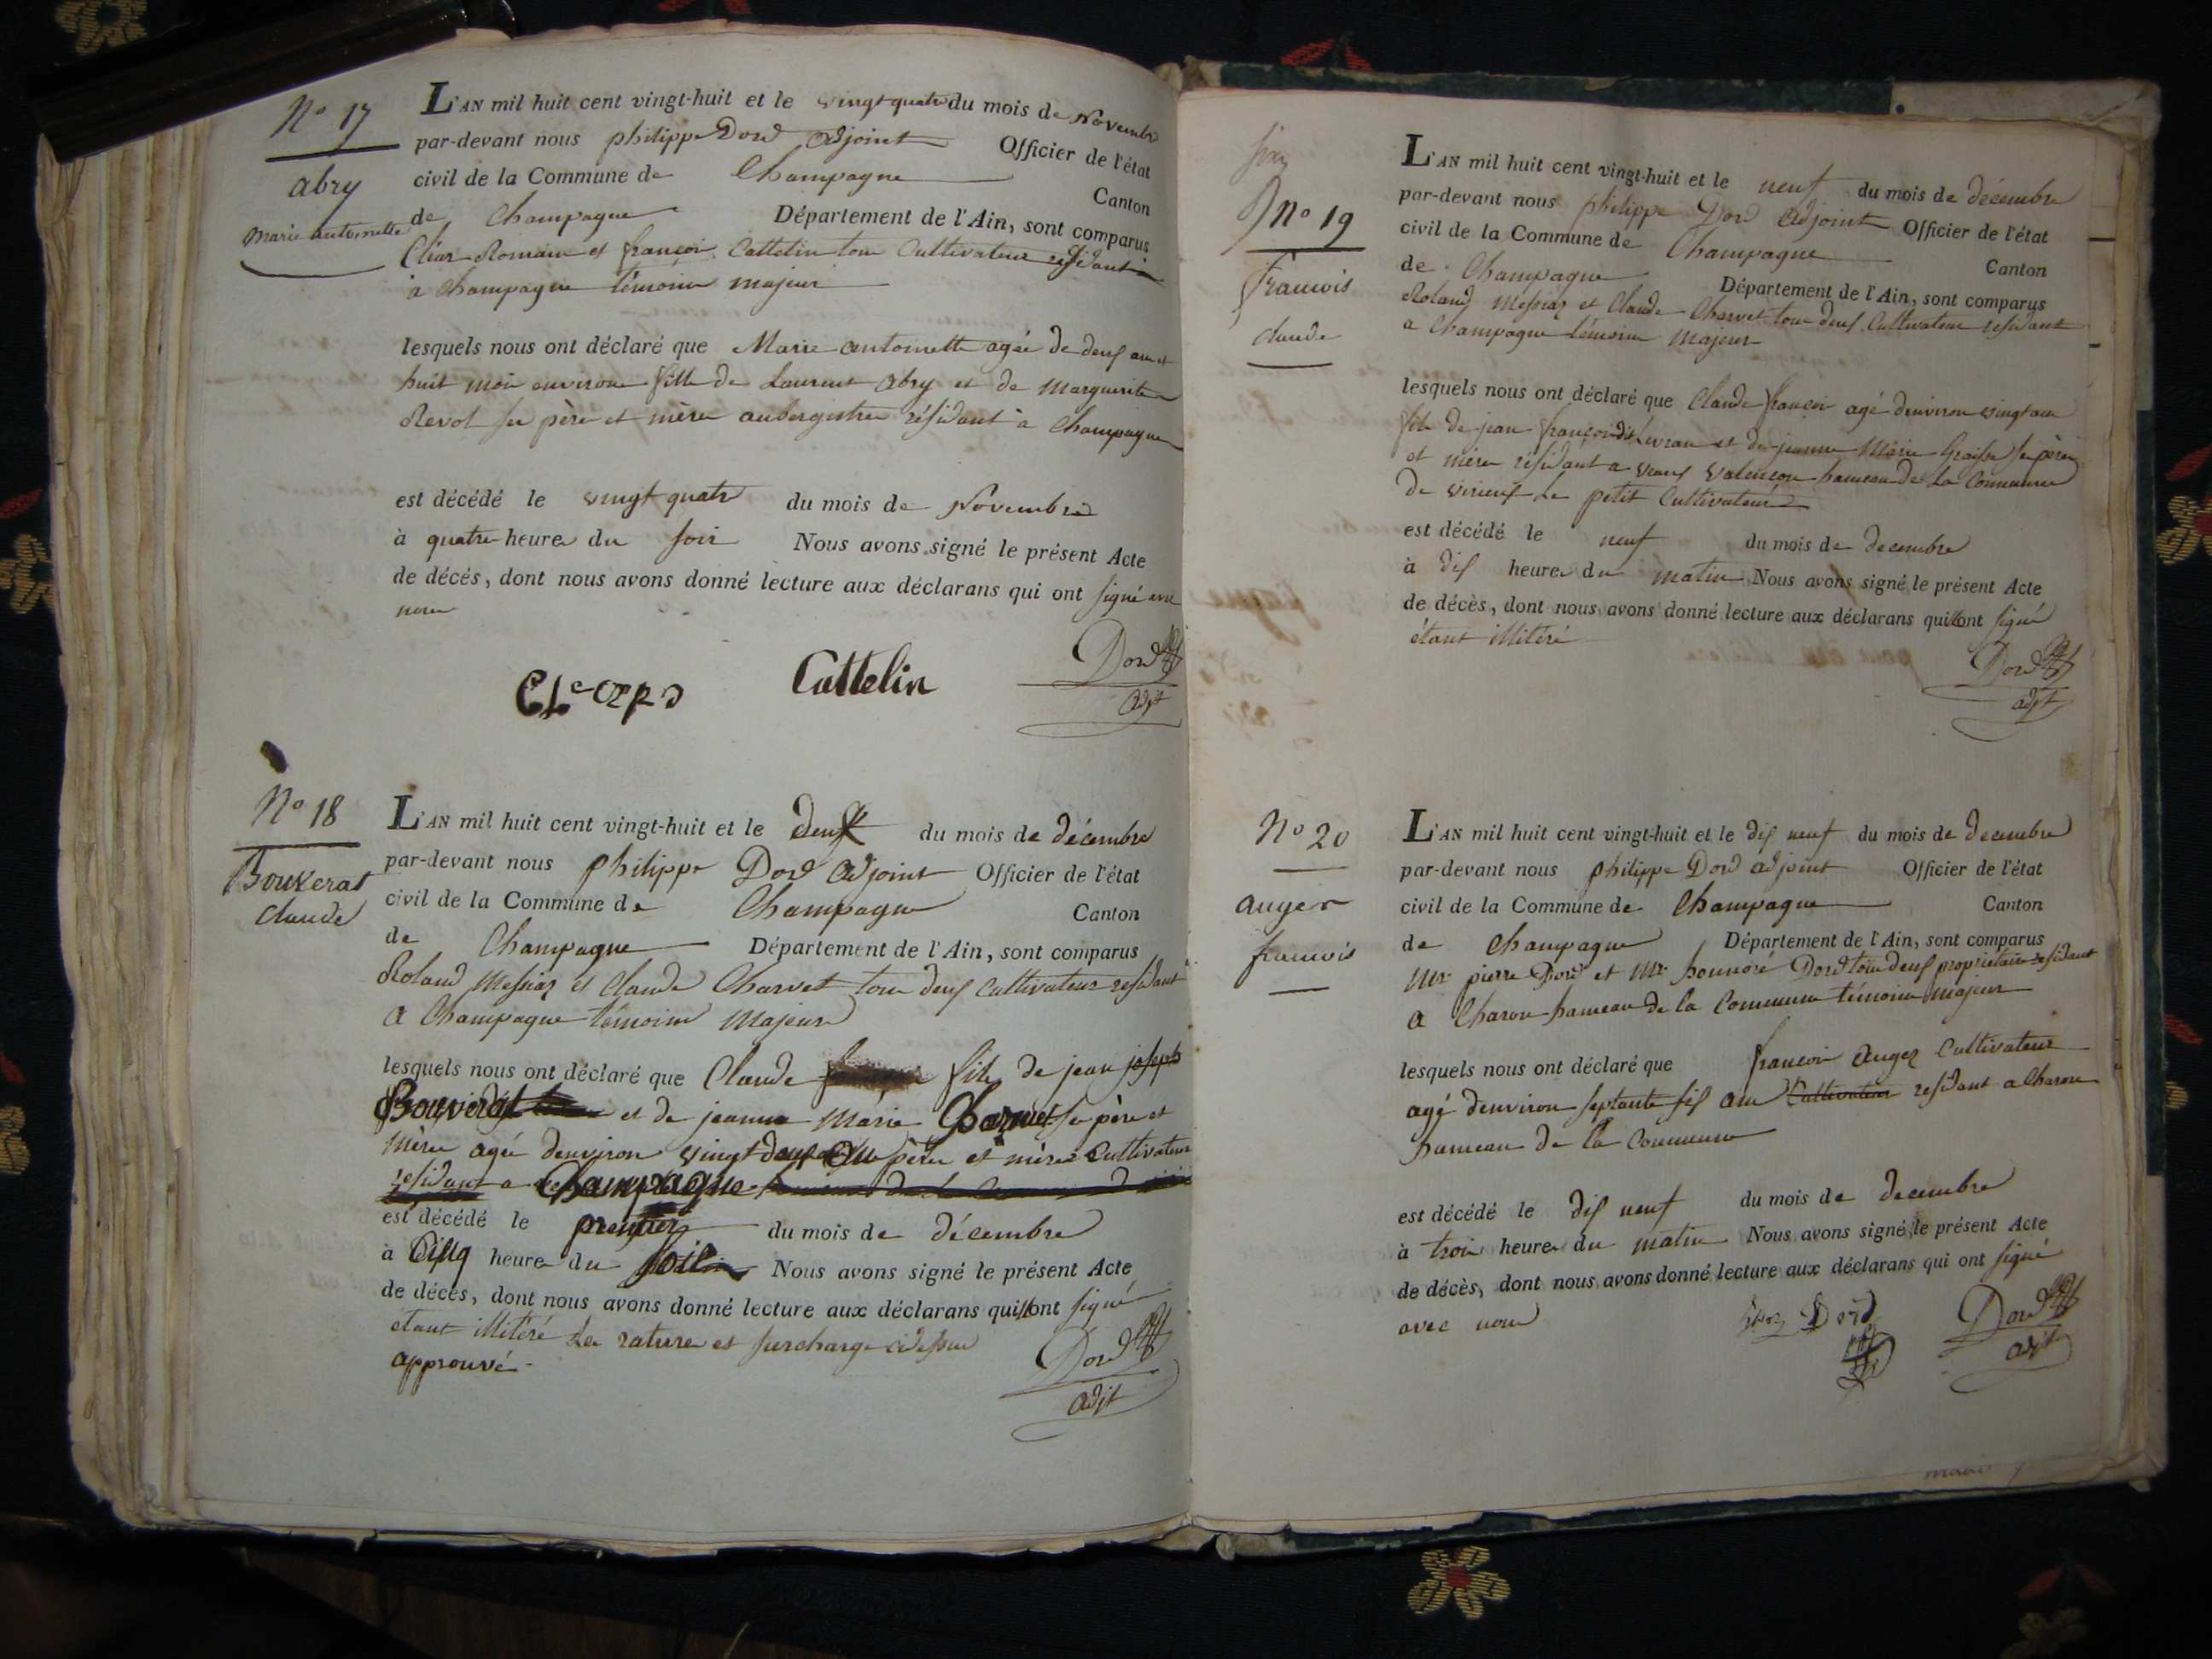 No 17
abry
marie antoinette
L'AN mil huit cent vingt-huit et le vingt quatre du mois de Novembre
par-devant nous philippe Dord adjoint Officier de l'état
civil de la Commune de Champagne Canton
de Champagne Département de l'Ain, sont comparus
Romain et françois Cattelin tous Cultivateurs résidant
à Champagne témoins majeur
lesquels nous ont déclaré que Marie antoinette agée de deux ans et
huit mois environs fille de Laurent abry et de Marguerite
Revol ses père et mère aubergistes résidant à Champagne
est décédé le vingt quatre du mois de Novembre
à quatre heures du soir Nous avons signé le présent Acte
de décés, dont nous avons donné lecture aux déclarans qui ont signé avec
nous
Cattelin
Dord
adjt
No 18
Bouverat
claude
L'AN mil huit cent vingt-huit et le deux du mois de décembre
par-devant nous philippe Dord adjoint Officier de l'état
civil de la Commune de Champagne Canton
de Champagne Département de l'Ain, sont comparus
Roland Messiaz et Claude Charvet tous deux cultivateurs residant
a Champagne témoins majeurs
lesquels nous ont déclaré que Claude fils de jean joseph
Bouverat et de jeanne Marie ses père et
mère agé denviron vingt deux ans père et mère Cultivateurs
residant a Champagne
est décédé le premier du mois de décembre
à Cinq heures du soir Nous avons signé le présent Acte
de décés, dont nous avons donné lecture aux déclarans qui nont signé
étant illitéré les rature et surcharge cidessus
approuvé
Dord
adjt
No 19
francois
claude
L'AN mil huit cent vingt-huit et le neuf du mois de décembre
par-devant nous philippe Dord adjoint Officier de l'état
civil de la Commune de Champagne Canton
de Champagne Département de l'Ain, sont comparus
Roland Messiaz et Claude Charvet tous deux Cultivateurs residant
a Champagne témoins majeurs
lesquels nous ont déclaré que Claude françois agé denviron vingt ans
fils de jean françois dit et de jeanne Marie ses père
et mère résidant a hameau de la Commune
de virieux le petit Cultivateurs
est décédé le neuf du mois de decembre
à dix heures du matin Nous avons signé le présent Acte
de décès, dont nous avons donné lecture aux déclarans qui nont signé
étant illitéré
Dord
adjt
No 20
auger
francois
L'AN mil huit cent vingt-huit et le dix neuf du mois de decembre
par-devant nous philippe Dord adjoint Officier de l'état
civil de la Commune de Champagne Canton
de Champagne Département de l'Ain, sont comparus
Mr pierre Dord et Mr honnoré Dord tous deux propriétaires residant
a Charon hameau de la Commune témoins majeurs
lesquels nous ont déclaré que francois Auger Cultivateur
agé denviron septante six ans Cultivateur residant a Charon
hameau de la Commune
est décédé le dix neuf du mois de decembre
à trois heures du matin Nous avons signé le présent Acte
de décès, dont nous avons donné lecture aux déclarans qui ont signé
avec nous
Dord
Dord
adjt